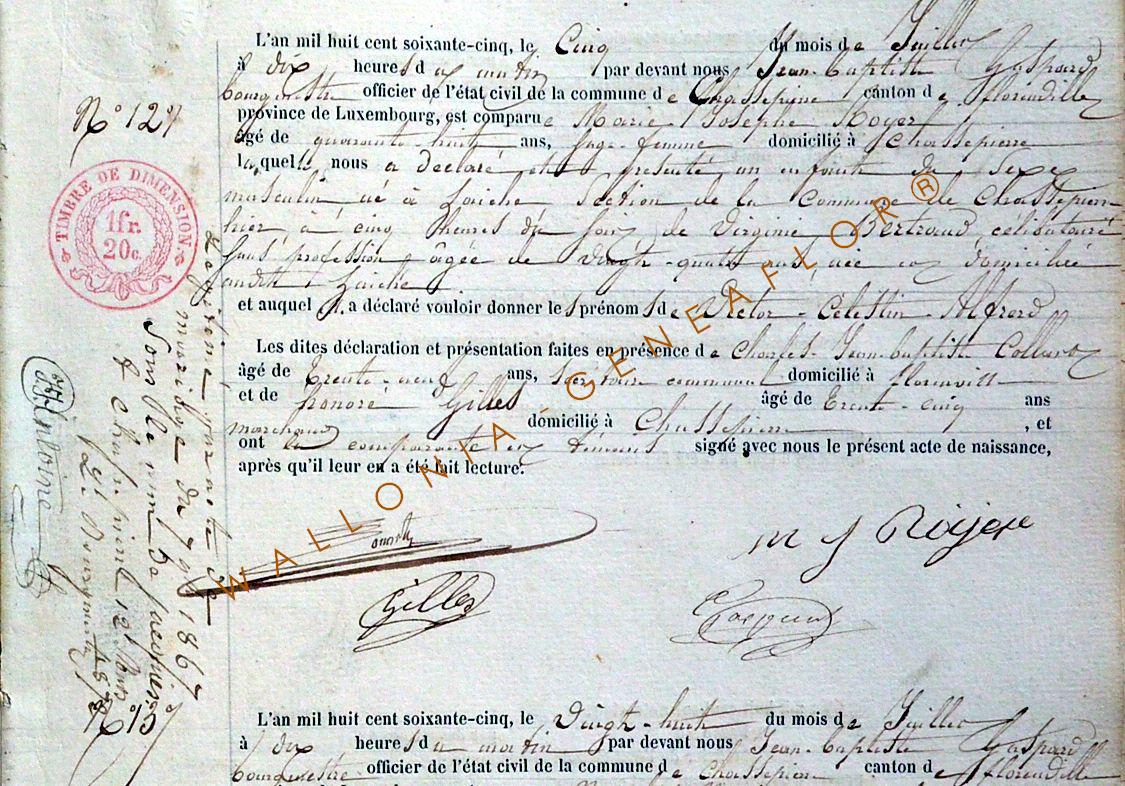 L'an mil huit cent soixante-cinq, le Cinq du mois de Juillet
à dix heures du matin par devant nous Jean-baptiste Gaspard
bourgmestre officier de l'état civil de la commune de Chassepierre canton de florenville
province de Luxembourg, est comparue Marie Josephe Royer
âgé de quarante huit ans, sage-femme domicilié à Chassepierre
laquelle nous a déclaré et présenté un enfant du sexe
masculin né à Laiche Section de la Commune de Chassepierre
hier à cinq heures du soir de Virginie Bertrand, célibataire
sans profession, âgée de Vingt-quatre ans, née et domiciliée
audit Laiche
et auquel a déclaré vouloir donner les prénoms de Victor-Célestin-Alfred
Les dites déclaration et présentation faites en présence de Charles-Jean-baptiste
âgé de Trente-neuf ans, Secrétaire communal domicilié à florenville
et de honoré Gilles âgé de Trente-cinq ans
marchand domicilié à Chassepierre, et
ont la comparante et témoins signé avec nous le présent acte de naissance,
après qu'il leur en a été fait lecture.
M J Roijer
Gilles
Gaspard
N° 12
TIMBRE DE DIMENSION.
1 fr.
20 c.
Légitimé par acte de
mariage du 7 1867
N° 13
L'an mil huit cent soixante-cinq, le Vingt-huit du mois de Juillet
à dix heures du matin par devant nous Jean-baptiste Gaspard
bourgmestre officier de l'état civil de la commune de Chassepierre canton de florenville
WALLONIA-GENEAFLOR®